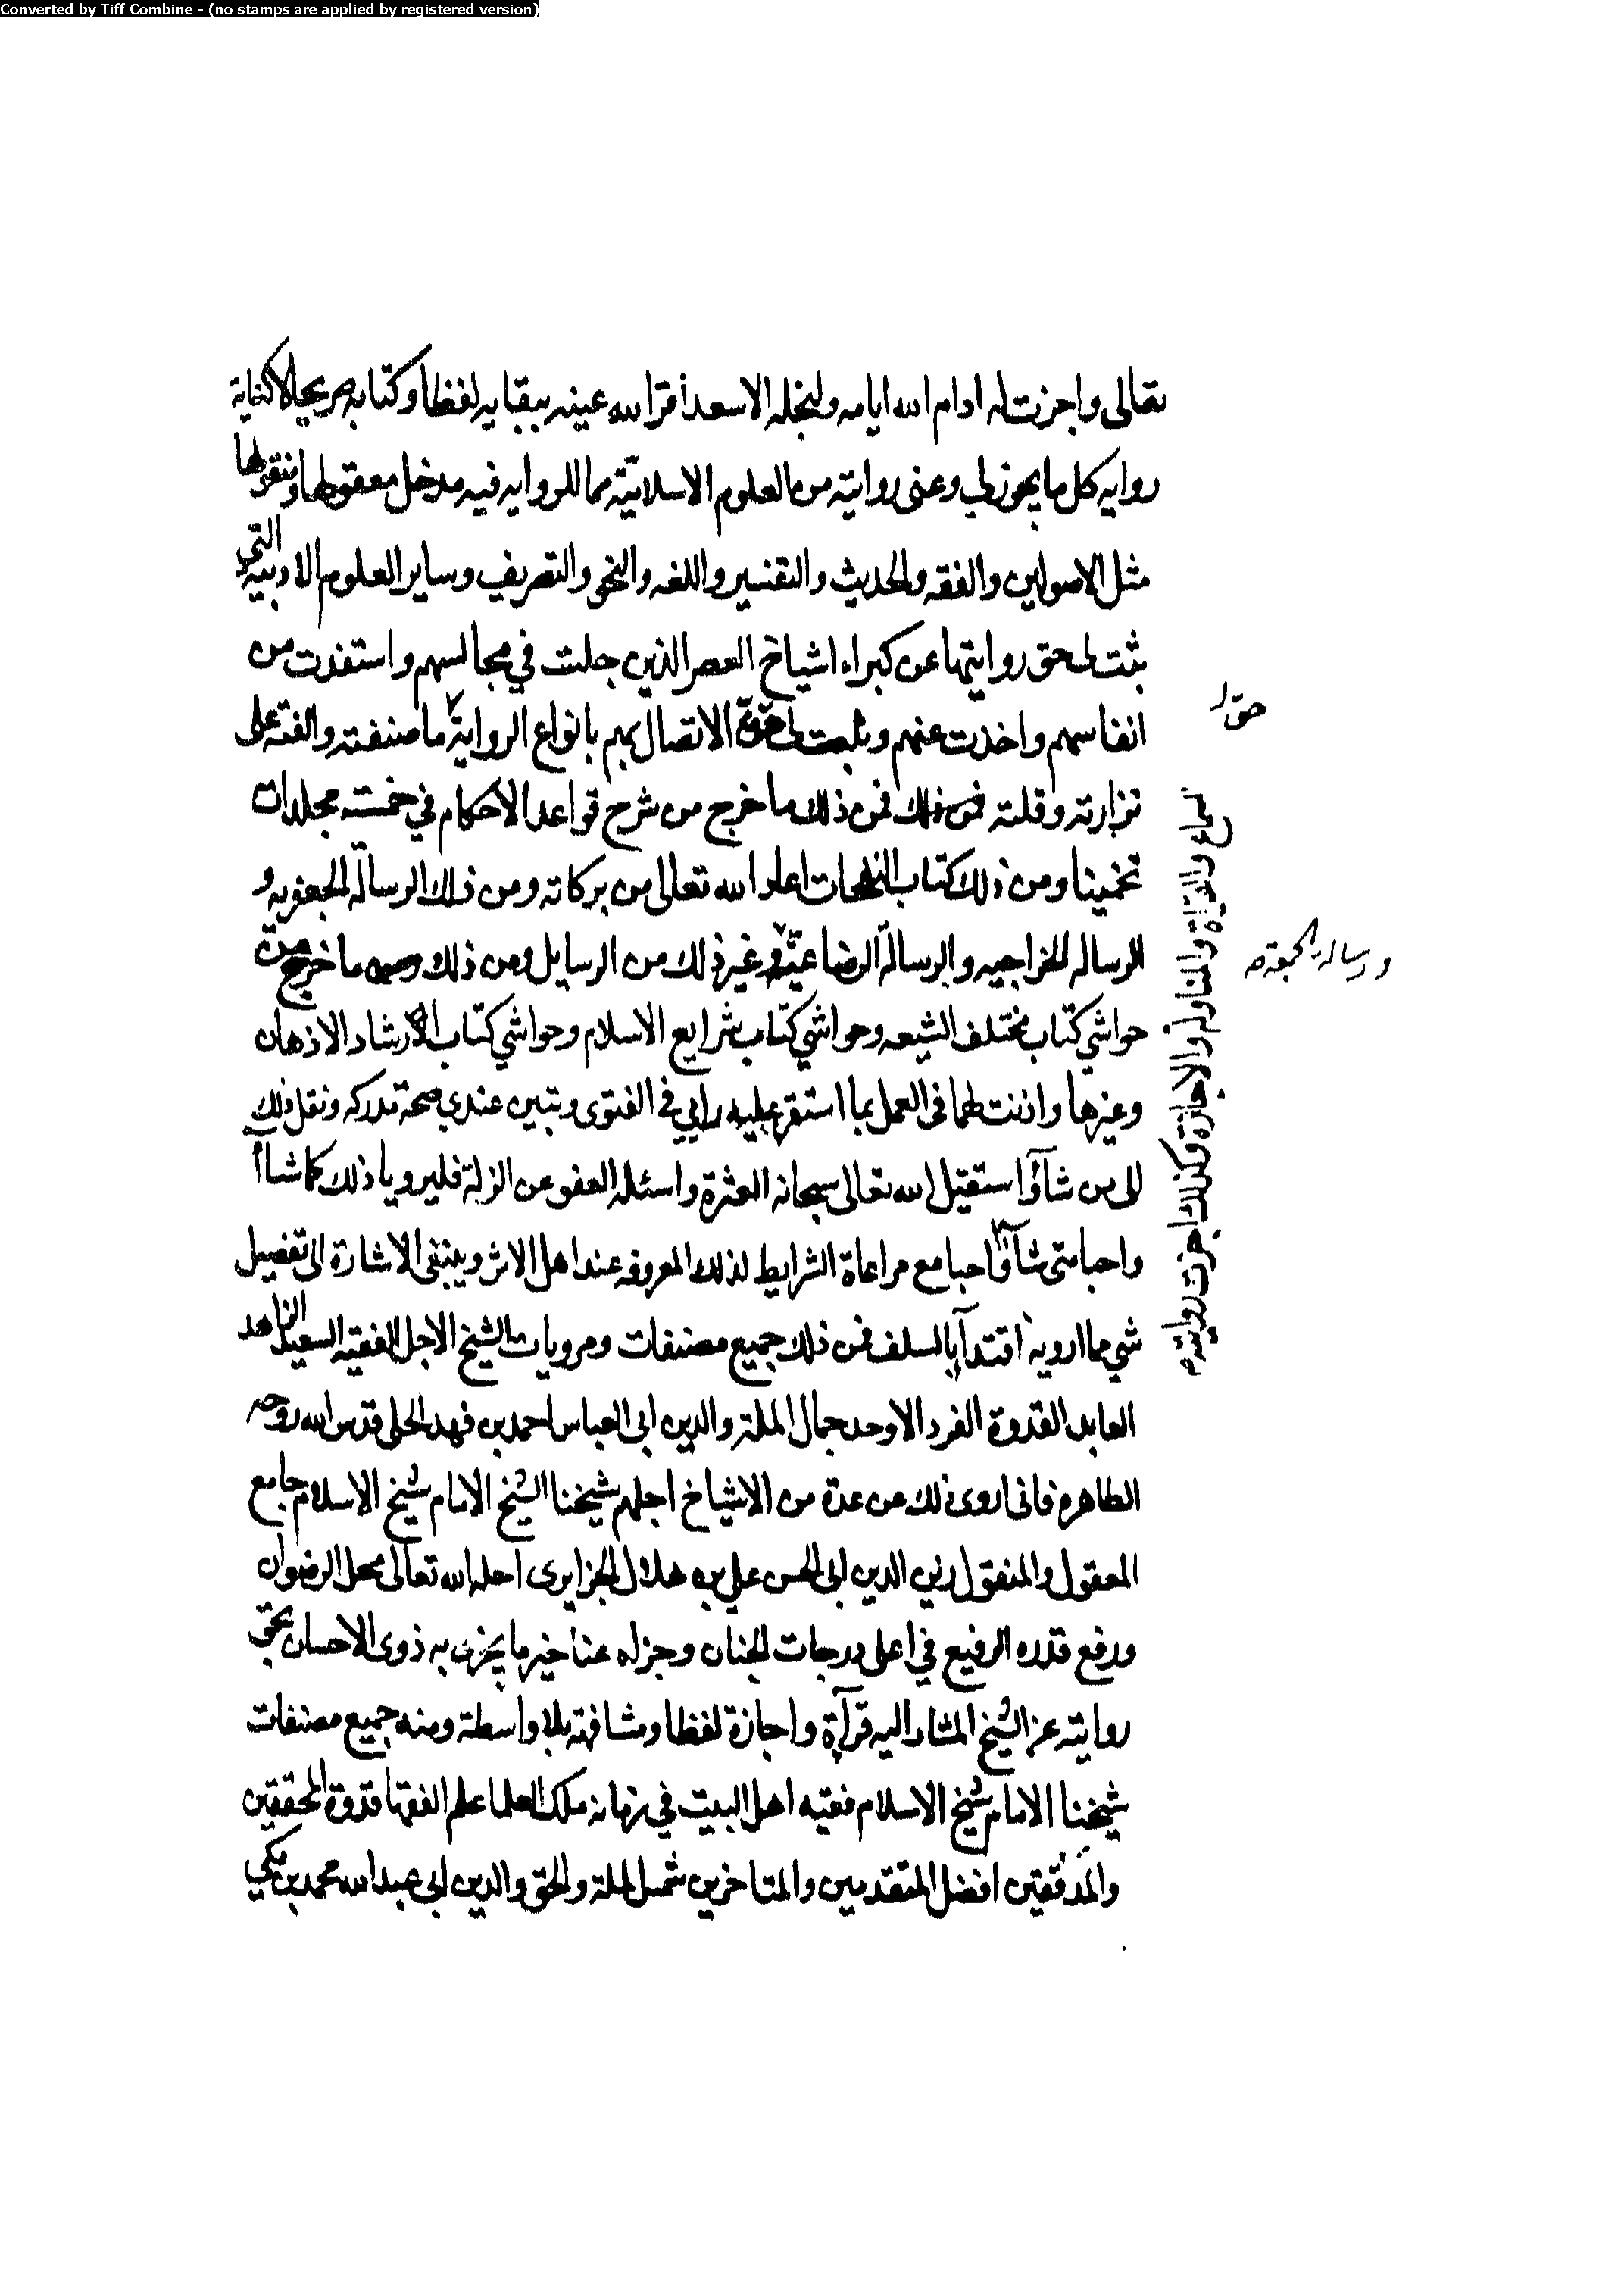 Converted by Tiff Combine - (no stamps are applied by registered version)
تعالى واجزت له ادام الله ايامه ولنجله الاسعد أقر الله عينه ببقايه لفظا وكتابه صريحا لا كناية
روايه كل ما يجوز لي وعنى روايته من العلوم الاسلاميّة مما للروايه فيه مدخل معقولها ومنقولها
مثل الاصولين والفقه والحديث والتفسير واللغه والنحو والتصريف وساير العلوم الادبيه التي
ثبت لى حق روايتها عن كبراء اشياخ العصر الذين جلست في مجالسهم واستفدت من
انفاسهم واخذت عنهم وثبت لى حق الاتصال بهم بانواع الرواية ما صنفته والفته على
نزارته وقلته فمن ذلك ما خرج من شرح قواعد الاحكام في خمسة مجلدات
تخمينا ومن ذلك كتاب النفحات اعاد الله تعالى من بركاته ومن ذلك الرسالة الجعفريه و
الرساله الخراجيه والرسالة الرضاعيّة وغير ذلك من الرسايل ومن ذلك ما خرج من
حواشي كتاب مختلف الشيعه وحواشي كتاب شرايع الاسلام وحواشي كتاب الارشاد الاذهان
وغيرها واذنت لهما فى العمل بما استقر عليه رايي في الفتوى وتبين عندي صحة مدركه ونقل ذلك
الى من شآؤا استقيل الله تعالى سبحانه العثرة واسئله العفو عن الزلة فليرويا ذلك كما شاأ
واحبا متى شآؤا احبا مع مراعاة الشرايط لذلك المعروفه عند اهل الاثر وينبغى الاشارة الى تفصيل
شي مما ارويه اقتدآء بالسلف فمن ذلك جميع مصنفات ومرويات الشيخ الاجل الفقيه السعيد الزاهد
العابد القدوة الفرد الاوحد جمال الملة والدين ابى العباس احمد بن فهد الحلى قدس الله روحه
الطاهره فانى اروى ذلك عن عدة من الاشياخ اجلهم شيخنا الشيخ الامام شيخ الاسلام جامع
المعقول والمنقول زين الدين ابى الحسن علي بن هلال الجزايرى احله الله تعالى محل الرضوان
ورفع قدره الرفيع في اعلى درجات الجنان وجزاه عنا خير ما يجزى به ذوى الاحسان بحق
روايته عن الشيخ المشار اليه قرآءة واجازة لفظا ومشافهة بلا واسطة ومنه جميع مصنفات
شيخنا الامام شيخ الاسلام فقيه اهل البيت في زمانه ملك العلما علم الفقها قدوة المحققين
والمدققين افضل المتقدمين والمتاخرين شمس الملة والحق والدين ابى عبد الله محمد بن مكي
حق
سماع والقراة والمناوله والاجازة وكذلك اجزت روايته
ورسالة الجمعة